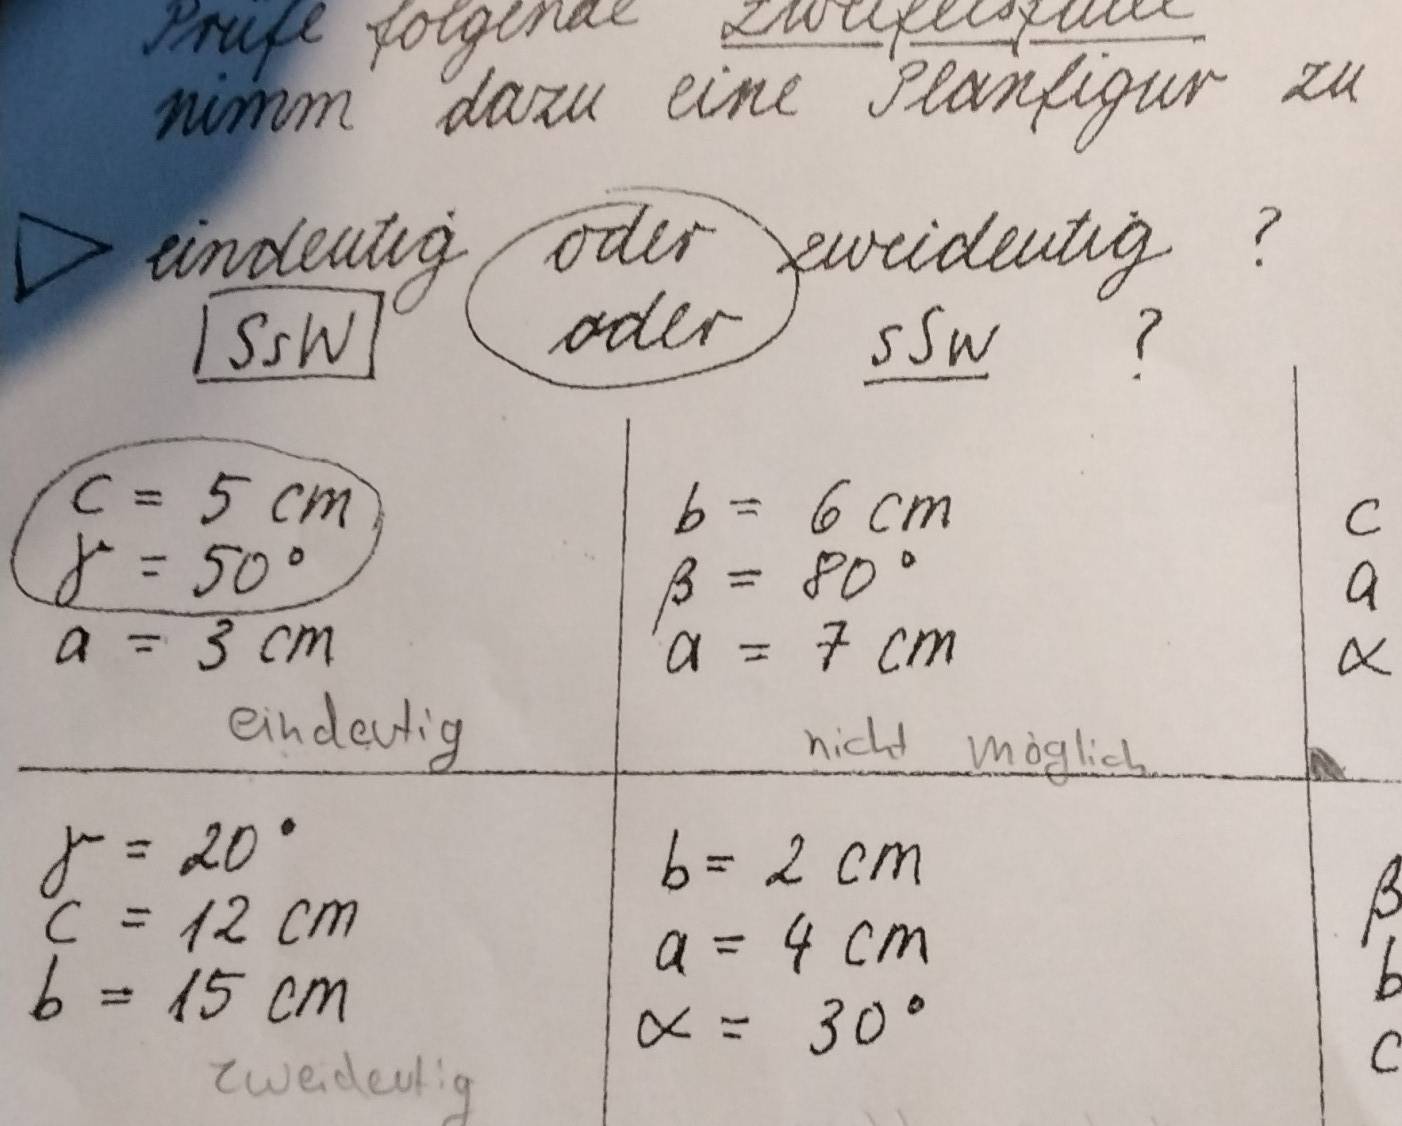 Prüfe folgende Zweifelsfälle
nimm dazu eine Planfigur zu
eindeutig oder zweideutig ?
SsW oder sSW ?
c = 5 cm
γ = 50°
a = 3 cm
eindeutig
b = 6 cm
β = 80°
a = 7 cm
nicht möglich
c
a
α
γ = 20°
c = 12 cm
b = 15 cm
zweideutig
b = 2 cm
a = 4 cm
α = 30°
β
b
c